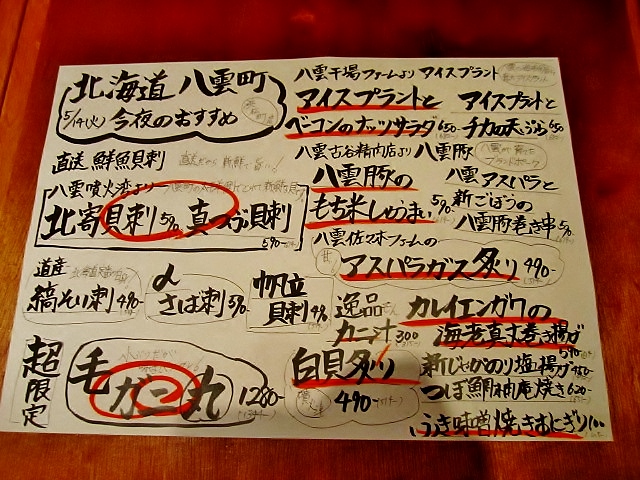 北海道 八雲町
5/14(火) 今夜のおすすめ
直送 鮮魚貝刺
八雲噴火湾より
北寄貝刺 590- 真つぶ貝刺
590-
道産
縞そい刺 490-
〆さば刺 590
帆立貝刺 490
超限定
毛ガニ丸 1280-
八雲干場ファームより アイスプラント
アイスプラントと
ベーコンのナッツサラダ 650-
アイスプラントと
チカの天ぷら 650
八雲古谷精肉店より 八雲豚
八雲豚の
もち米しゅうまい 590-
八雲アスパラと
新ごぼうの
八雲豚巻き串 590-
八雲佐々木ファームの
アスパラガス炙り 490-
逸品
カニ汁 300
白貝炙り
490-
カレイエンガワの
海老真丈巻き揚げ
590-
新じゃがのり塩揚げ 450-
つぼ鯛柚庵焼き 620-
うき味噌焼きおにぎり 100